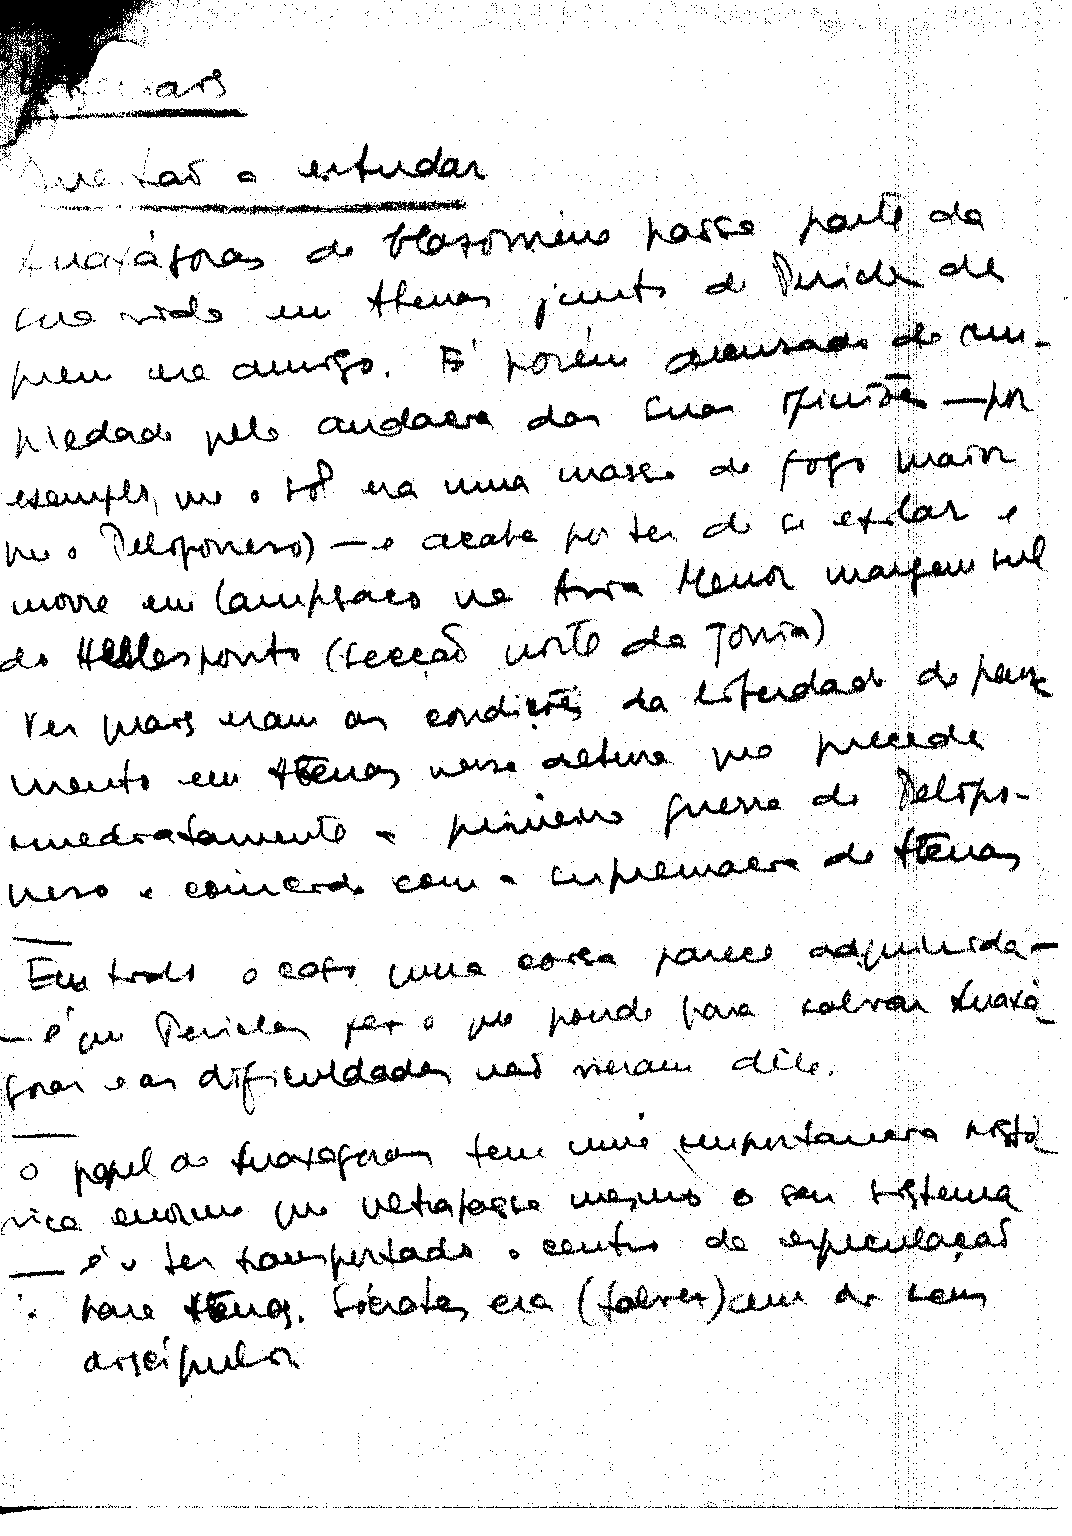 Questão a estudar
Anaxágoras de Clazomene passa parte da
sua vida em Atenas junto de Pericles de
quem era amigo. É porém acusado de im-
piedade pela audacia das suas opiniões — por
exemplo, que o sol era uma massa de fogo maior
que o Peloponeso) — e acaba por ter de se exilar e
morre em Lampsaco na Asia Menor margem sul
do Hellesponto (secção norte da Jonia)
Ver quais eram as condições da liberdade de pensa
mento em Atenas nessa altura que precede
imediatamente a primeira guerra do Pelopo-
neso e coincide com a supremacia de Atenas
Em todo o caso uma coisa parece adquirida —
— é que Pericles fez o que poude para salvar Anaxá
goras e as dificuldades não vieram dele.
O papel de Anaxagoras tem uma importancia histó
rica enorme que ultrapassa mesmo o seu sistema
— é o ter transportado o centro da especulação
para Atenas. Sócrates era (talvez) um dos seus
discípulos